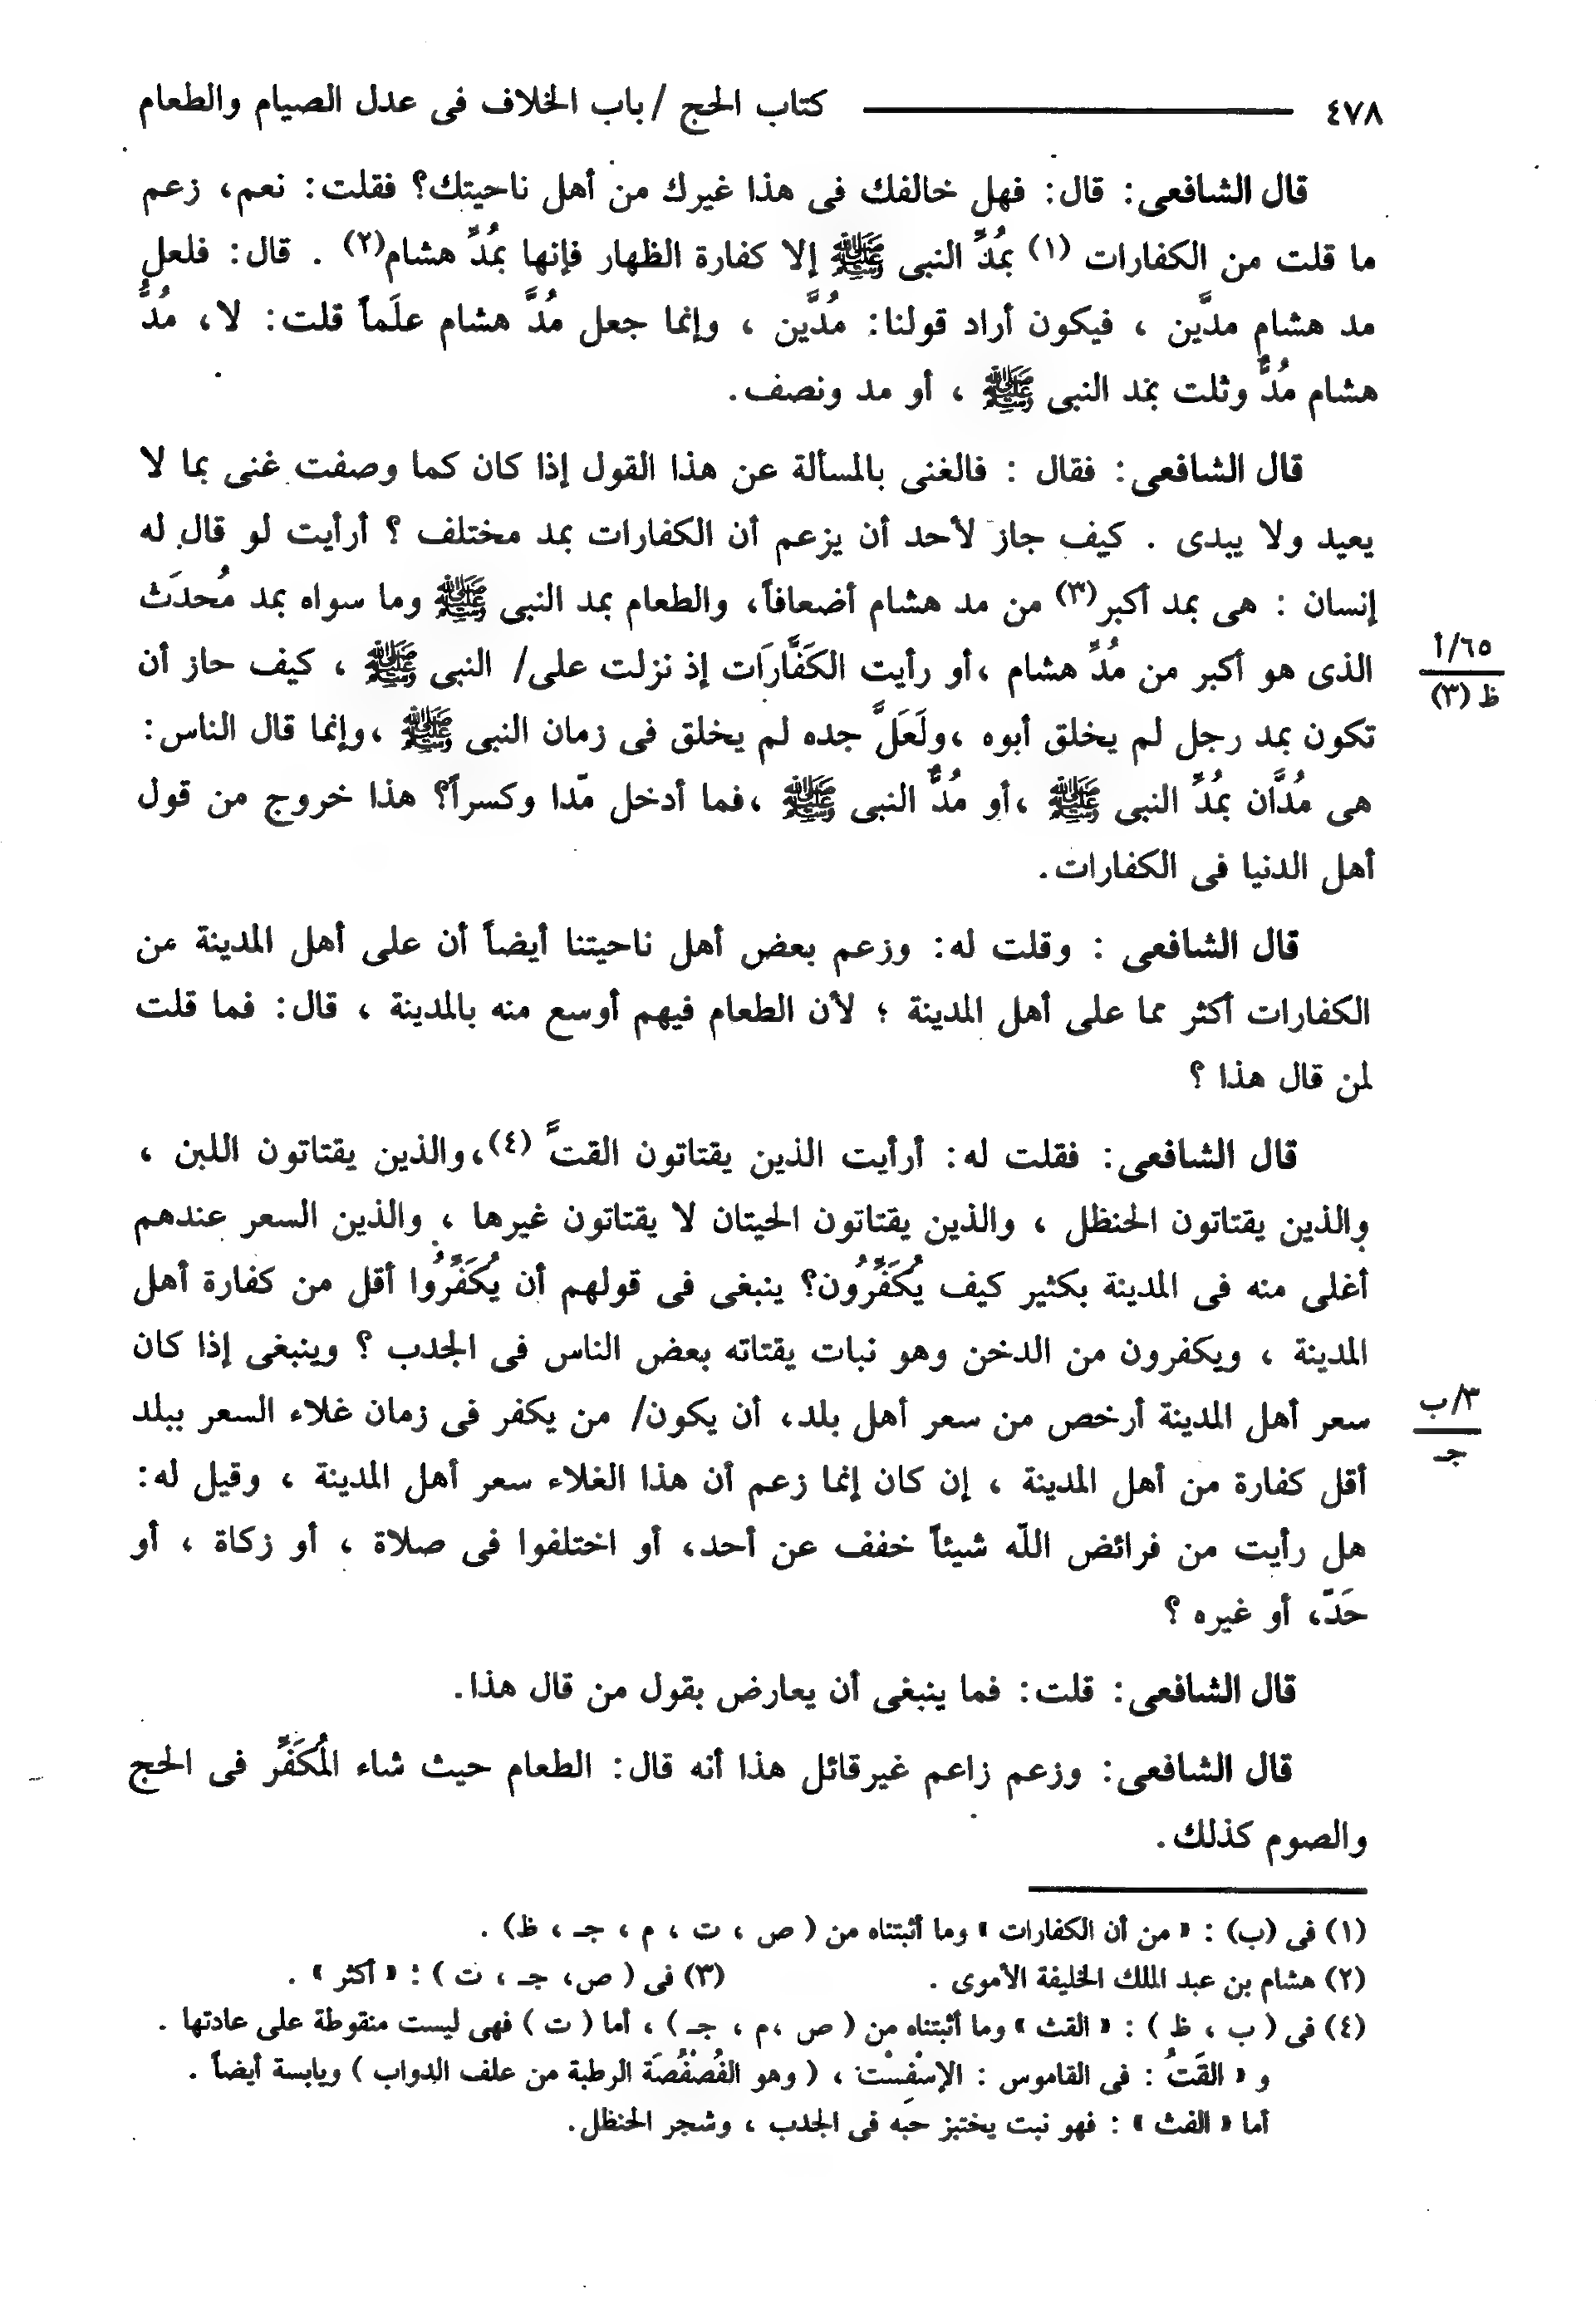 ٤٧٨ كتاب الحج / باب الخلاف فى عدل الصيام والطعام
قال الشافعى: قال: فهل خالفك فى هذا غيرك من أهل ناحيتك؟ فقلت: نعم، زعم
ما قلت من الكفارات (١) بمُدِّ النبى ﷺ إلا كفارة الظهار فإنها بمُدِّ هشام(٢) . قال: فلعل
مد هشام مدَّين ، فيكون أراد قولنا: مُدَّين ، وإنما جعل مُدَّ هشام علَماً قلت: لا، مُدُّ
هشام مُدٌّ وثلت بمد النبى ﷺ ، أو مد ونصف.
قال الشافعى: فقال : فالغنى بالمسألة عن هذا القول إذا كان كما وصفت غنى بما لا
يعيد ولا يبدى . كيف جاز لأحد أن يزعم أن الكفارات بمد مختلف ؟ أرأيت لو قال له
إنسان : هى بمد أكبر(٣) من مد هشام أضعافاً، والطعام بمد النبى ﷺ وما سواه بمد مُحدَث
الذى هو أكبر من مُدِّ هشام ،أو رأيت الكَفَّارَات إذ نزلت على/ النبى ﷺ ، كيف حاز أن
٦٥/أ
ظ (٣)
تكون بمد رجل لم يخلق أبوه ،ولَعَلَّ جده لم يخلق فى زمان النبى ﷺ ،وإنما قال الناس:
هى مُدَّان بمُدِّ النبى ﷺ ،أو مُدٌّ النبى ﷺ ،فما أدخل مّدا وكسراً؟ هذا خروج من قول
أهل الدنيا فى الكفارات.
قال الشافعى : وقلت له: وزعم بعض أهل ناحيتنا أيضاً أن على أهل المدينة من
الكفارات أكثر مما على أهل المدينة ؛ لأن الطعام فيهم أوسع منه بالمدينة ، قال: فما قلت
لمن قال هذا ؟
قال الشافعى: فقلت له: أرأيت الذين يقتاتون القتَّ (٤)،والذين يقتاتون اللبن ،
والذين يقتاتون الحنظل ، والذين يقتاتون الحيتان لا يقتاتون غيرها ، والذين السعر عندهم
أغلى منه فى المدينة بكثير كيف يُكَفِّرُون؟ ينبغى فى قولهم أن يُكَفِّرُوا أقل من كفارة أهل
المدينة ، ويكفرون من الدخن وهو نبات يقتاته بعض الناس فى الجدب ؟ وينبغى إذا كان
سعر أهل المدينة أرخص من سعر أهل بلد، أن يكون/ من يكفر فى زمان غلاء السعر ببلد
٣/ب
جـ
أقل كفارة من أهل المدينة ، إن كان إنما زعم أن هذا الغلاء سعر أهل المدينة ، وقيل له:
هل رأيت من فرائض اللّه شيئاً خفف عن أحد، أو اختلفوا فى صلاة ، أو زكاة ، أو
حَدّ، أو غيره ؟
قال الشافعى: قلت: فما ينبغى أن يعارض بقول من قال هذا.
قال الشافعى: وزعم زاعم غيرقائل هذا أنه قال: الطعام حيث شاء المُكَفِّر فى الحج
والصوم كذلك.
(١) فى (ب) : « من أن الكفارات » وما أثبتناه من ( ص ، ت ، م ، جـ ، ظ) .
(٢) هشام بن عبد الملك الخليفة الأموى . (٣) فى ( ص، جـ ، ت ) : « أكثر » .
(٤) فى ( ب ، ظ ) : « القث » وما أثبتناه من ( ص ،م ، جـ ) ، أما ( ت ) فهى ليست منقوطة على عادتها .
و « القَتُ : فى القاموس : الإسْفِسْت ، ( وهو الفُصْفُصَة الرطبة من علف الدواب ) ويابسة أيضاً .
أما « الفث » : فهو نبت يختبز حبه فى الجدب ، وشجر الحنظل.